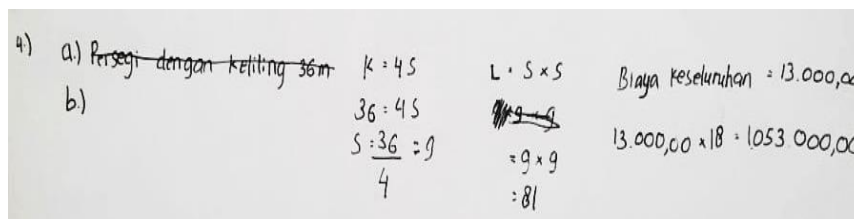 4.) a.) Persegi dengan keliling 36m
b.)
K = 4S
36 = 4S
S = 36 = 9
4
L = S x S
= 9 x 9
= 81
Biaya keseluruhan = 13.000,00
13.000,00 x 18 = 1.053.000,00